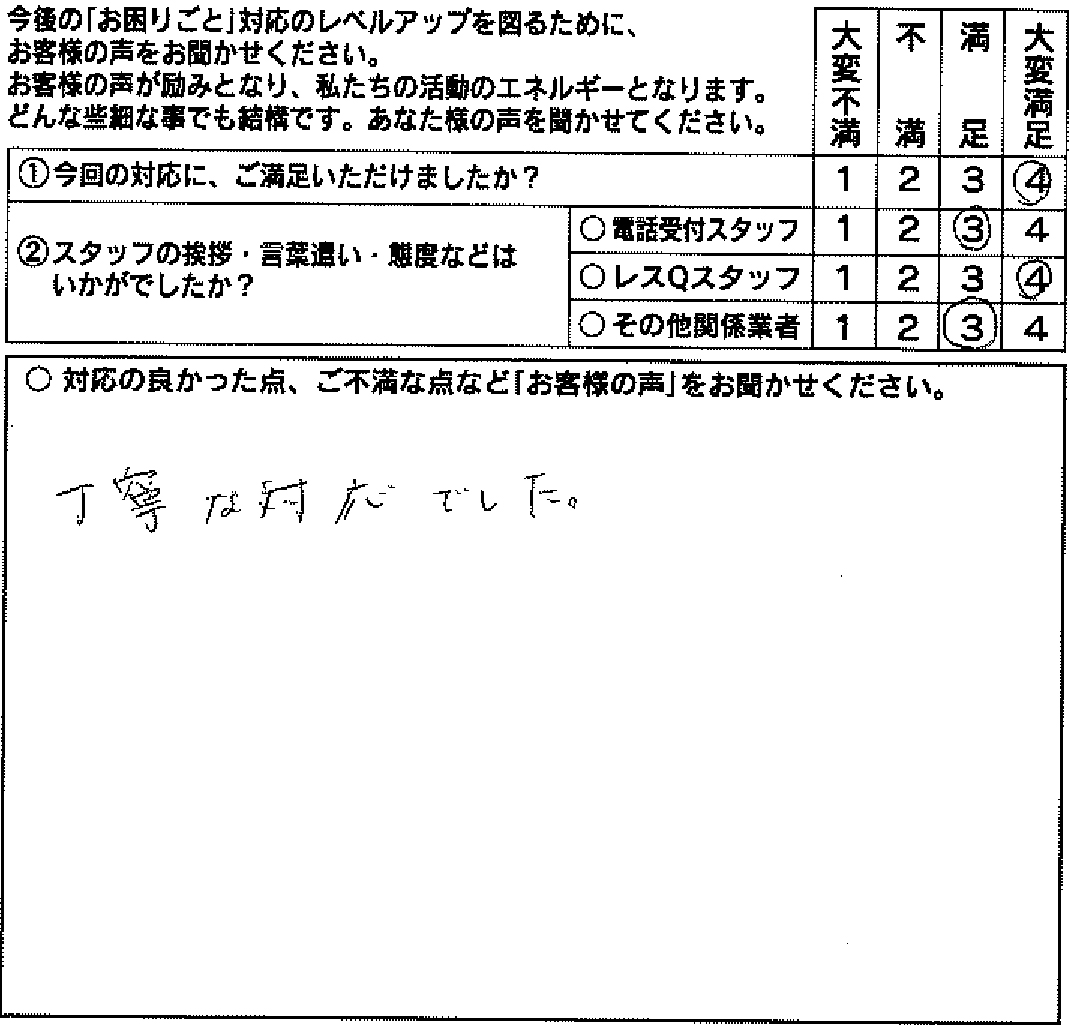 今後の「お困りごと」対応のレベルアップを図るために、
お客様の声をお聞かせください。
お客様の声が励みとなり、私たちの活動のエネルギーとなります。
どんな些細な事でも結構です。あなた様の声を聞かせてください。
大変不満 不満 満足 大変満足
①今回の対応に、ご満足いただけましたか？ 1 2 3 4
②スタッフの挨拶・言葉遣い・態度などは
いかがでしたか？
○電話受付スタッフ 1 2 3 4
○レスQスタッフ 1 2 3 4
○その他関係業者 1 2 3 4
○ 対応の良かった点、ご不満な点など「お客様の声」をお聞かせください。
丁寧な対応でした。